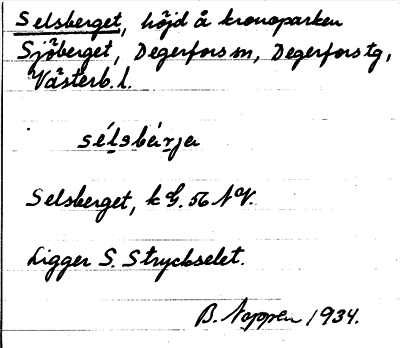 Selsberget, höjd å kronoparken
Sjöberget, Degerfors sn, Degerfors tg,
Västerb. l.
sélsbärja
Selsberget, k G. 56 NV.
Ligger S. Stryckselet.
B. Noppen 1934.